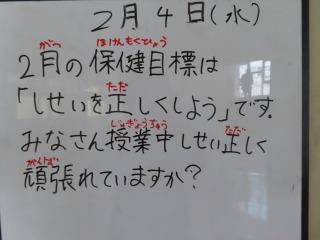 2月4日(水)
がつ ほけんもくひょう
2月の保健目標は
ただ
「しせいを正しくしよう」です。
じゅぎょうちゅう ただ
みなさん授業中しせい正しく
がんば
頑張れていますか?